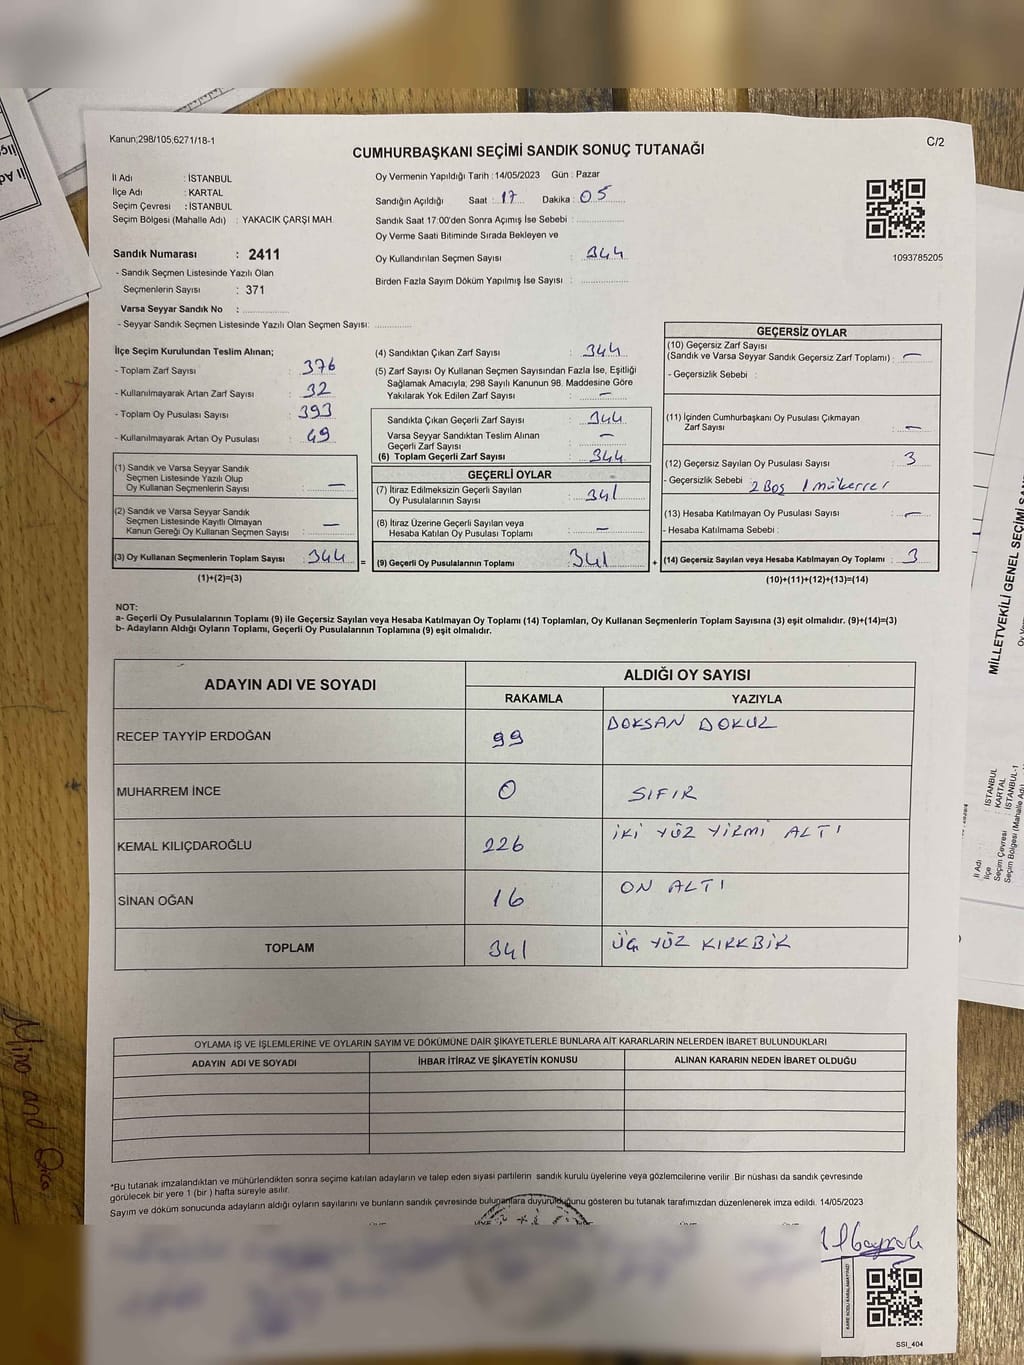 Kanun;298/105;6271/18-1
C/2
CUMHURBAŞKANI SEÇİMİ SANDIK SONUÇ TUTANAĞI
İl Adı : İSTANBUL
İlçe Adı : KARTAL
Seçim Çevresi : İSTANBUL
Seçim Bölgesi (Mahalle Adı) : YAKACIK ÇARŞI MAH.
Sandık Numarası : 2411
- Sandık Seçmen Listesinde Yazılı Olan
Seçmenlerin Sayısı : 371
Varsa Seyyar Sandık No :
- Seyyar Sandık Seçmen Listesinde Yazılı Olan Seçmen Sayısı:
Oy Vermenin Yapıldığı Tarih : 14/05/2023 Gün : Pazar
Sandığın Açıldığı Saat : 17 Dakika : 05
Sandık Saat 17:00'den Sonra Açımış İse Sebebi :
Oy Verme Saati Bitiminde Sırada Bekleyen ve
Oy Kullandırılan Seçmen Sayısı : 344
Birden Fazla Sayım Döküm Yapılmış İse Sayısı :
1093785205
İlçe Seçim Kurulundan Teslim Alınan;
- Toplam Zarf Sayısı : 376
- Kullanılmayarak Artan Zarf Sayısı : 32
- Toplam Oy Pusulası Sayısı : 393
- Kullanılmayarak Artan Oy Pusulası : 49
(1) Sandık ve Varsa Seyyar Sandık
Seçmen Listesinde Yazılı Olup
Oy Kullanan Seçmenlerin Sayısı : —
(2) Sandık ve Varsa Seyyar Sandık
Seçmen Listesinde Kayıtlı Olmayan
Kanun Gereği Oy Kullanan Seçmen Sayısı : —
(3) Oy Kullanan Seçmenlerin Toplam Sayısı : 344 =
(1)+(2)=(3)
(4) Sandıktan Çıkan Zarf Sayısı : 344
(5) Zarf Sayısı Oy Kullanan Seçmen Sayısından Fazla İse, Eşitliği
Sağlamak Amacıyla; 298 Sayılı Kanunun 98. Maddesine Göre
Yakılarak Yok Edilen Zarf Sayısı : —
Sandıkta Çıkan Geçerli Zarf Sayısı : 344
Varsa Seyyar Sandıktan Teslim Alınan
Geçerli Zarf Sayısı : —
(6) Toplam Geçerli Zarf Sayısı : 344
GEÇERLİ OYLAR
(7) İtiraz Edilmeksizin Geçerli Sayılan
Oy Pusulalarının Sayısı : 341
(8) İtiraz Üzerine Geçerli Sayılan veya
Hesaba Katılan Oy Pusulası Toplamı : —
(9) Geçerli Oy Pusulalarının Toplamı : 341 +
GEÇERSİZ OYLAR
(10) Geçersiz Zarf Sayısı
(Sandık ve Varsa Seyyar Sandık Geçersiz Zarf Toplamı) : —
- Geçersizlik Sebebi :
(11) İçinden Cumhurbaşkanı Oy Pusulası Çıkmayan
Zarf Sayısı : —
(12) Geçersiz Sayılan Oy Pusulası Sayısı : 3
- Geçersizlik Sebebi : 2 Boş 1 mükerrer
(13) Hesaba Katılmayan Oy Pusulası Sayısı : —
- Hesaba Katılmama Sebebi :
(14) Geçersiz Sayılan veya Hesaba Katılmayan Oy Toplamı : 3
(10)+(11)+(12)+(13)=(14)
NOT:
a- Geçerli Oy Pusulalarının Toplamı (9) ile Geçersiz Sayılan veya Hesaba Katılmayan Oy Toplamı (14) Toplamları, Oy Kullanan Seçmenlerin Toplam Sayısına (3) eşit olmalıdır. (9)+(14)=(3)
b- Adayların Aldığı Oyların Toplamı, Geçerli Oy Pusulalarının Toplamına (9) eşit olmalıdır.
ADAYIN ADI VE SOYADI ALDIĞI OY SAYISI
RAKAMLA YAZIYLA
RECEP TAYYİP ERDOĞAN 99 DOKSAN DOKUZ
MUHARREM İNCE 0 SIFIR
KEMAL KILIÇDAROĞLU 226 İKİ YÜZ YİRMİ ALTI
SİNAN OĞAN 16 ON ALTI
TOPLAM 341 ÜÇ YÜZ KIRKBİR
OYLAMA İŞ VE İŞLEMLERİNE VE OYLARIN SAYIM VE DÖKÜMÜNE DAİR ŞİKAYETLERLE BUNLARA AİT KARARLARIN NELERDEN İBARET BULUNDUKLARI
ADAYIN ADI VE SOYADI İHBAR İTİRAZ VE ŞİKAYETİN KONUSU ALINAN KARARIN NEDEN İBARET OLDUĞU
*Bu tutanak imzalandıktan ve mühürlendikten sonra seçime katılan adayların ve talep eden siyasi partilerin sandık kurulu üyelerine veya gözlemcilerine verilir. Bir nüshası da sandık çevresinde
görülecek bir yere 1 (bir) hafta süreyle asılır.
Sayım ve döküm sonucunda adayların aldığı oyların sayılarını ve bunların sandık çevresinde bulunanlara duyurulduğunu gösteren bu tutanak tarafımızdan düzenlenerek imza edildi. 14/05/2023
SSI_404
MİLLETVEKİLİ GENEL SEÇİMİ
İl Adı : İSTANBUL
İlçe : KARTAL
Seçim Çevresi : İSTANBUL-1
Seçim Bölgesi (Mahalle Adı)
Mino and